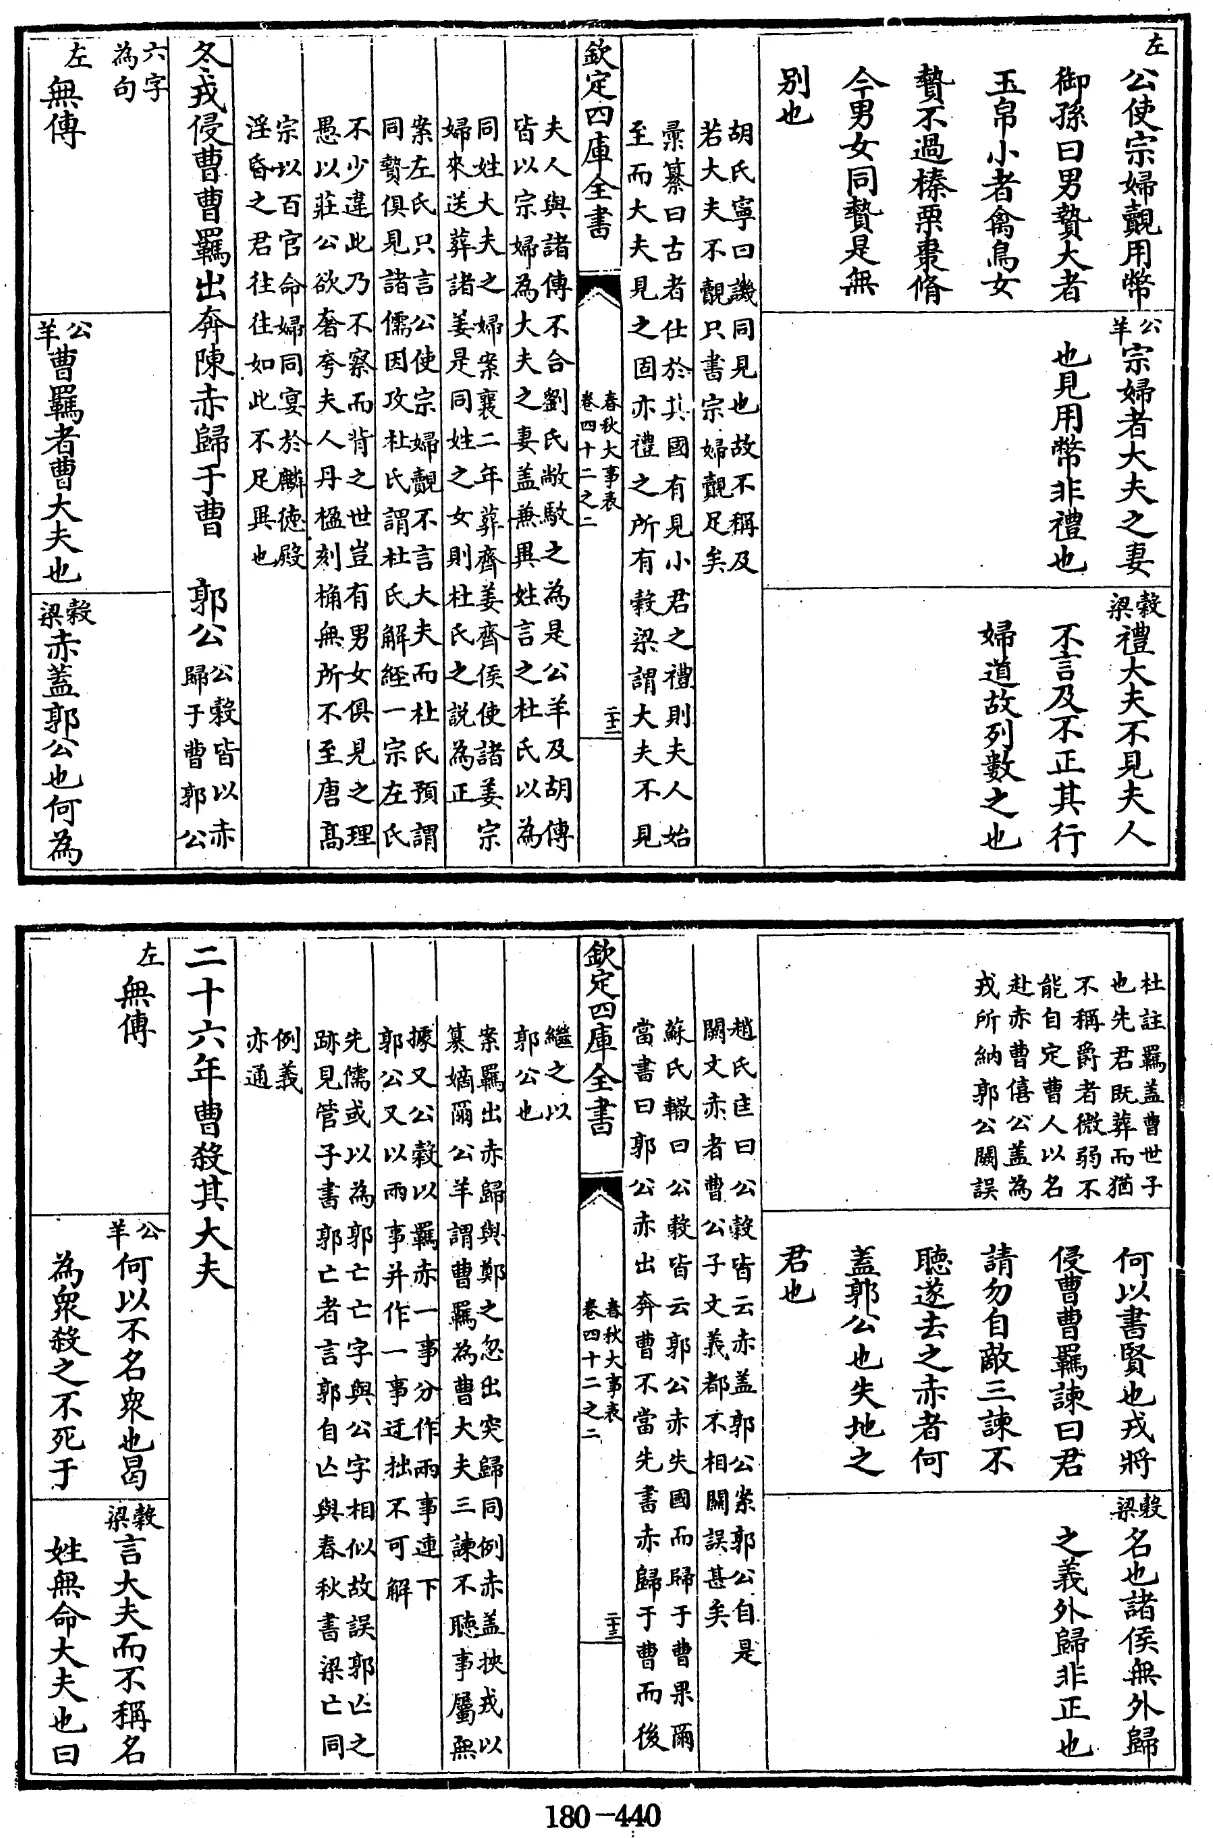 左
公使宗婦覿用幣
御孫曰男贄大者
玉帛小者禽鳥女
贄不過榛栗棗脩
今男女同贄是無
别也
公羊
宗婦者大夫之妻
也見用幣非禮也
穀梁
禮大夫不見夫人
不言及不正其行
婦道故列數之也
胡氏寧曰譏同見也故不稱及
若大夫不覿只書宗婦覿足矣
彚纂曰古者仕於其國有見小君之禮則夫人始
至而大夫見之固亦禮之所有穀梁謂大夫不見
欽定四庫全書
春秋大事表
卷四十二之二
二十二
夫人與諸傳不合劉氏敞駮之為是公羊及胡傳
皆以宗婦為大夫之妻盖兼異姓言之杜氏以為
同姓大夫之婦案襄二年葬齊姜齊侯使諸姜宗
婦來送葬諸姜是同姓之女則杜氏之説為正
案左氏只言公使宗婦覿不言大夫而杜氏預謂
同贄俱見諸儒因攻杜氏謂杜氏解經一宗左氏
不少違此乃不察而背之世豈有男女俱見之理
愚以莊公欲奢夸夫人丹楹刻桷無所不至唐髙
宗以百官命婦同宴於麟徳殿
淫昏之君往往如此不足異也
冬戎侵曹曹羈出奔陳赤歸于曹　郭公
公穀皆以赤
歸于曹郭公
六字
為句
左
無傳
公羊
曹羈者曹大夫也
穀梁
赤蓋郭公也何為
杜註羈盖曹世子
也先君既葬而猶
不稱爵者微弱不
能自定曹人以名
赴赤曹僖公盖為
戎所納郭公闕誤
何以書賢也戎將
侵曹曹羈諫曰君
請勿自敵三諫不
聽遂去之赤者何
蓋郭公也失地之
君也
穀梁
名也諸侯無外歸
之義外歸非正也
趙氏匡曰公穀皆云赤盖郭公案郭公自是
闕文赤者曹公子文義都不相關誤甚矣
蘇氏轍曰公穀皆云郭公赤失國而歸于曹果爾
當書曰郭公赤出奔曹不當先書赤歸于曹而後
欽定四庫全書
春秋大事表
卷四十二之二
二十三
繼之以
郭公也
案羈出赤歸與鄭之忽出突歸同例赤盖挾戎以
簒嫡爾公羊謂曹羈為曹大夫三諫不聽事屬無
據又公穀以羈赤一事分作兩事連下
郭公又以兩事并作一事迂拙不可解
先儒或以為郭亡亡字與公字相似故誤郭亡之
跡見管子書郭亡者言郭自亡與春秋書梁亡同
例義
亦通
二十六年曹殺其大夫
左
無傳
公羊
何以不名衆也曷
為衆殺之不死于
穀梁
言大夫而不稱名
姓無命大夫也曰
180-440